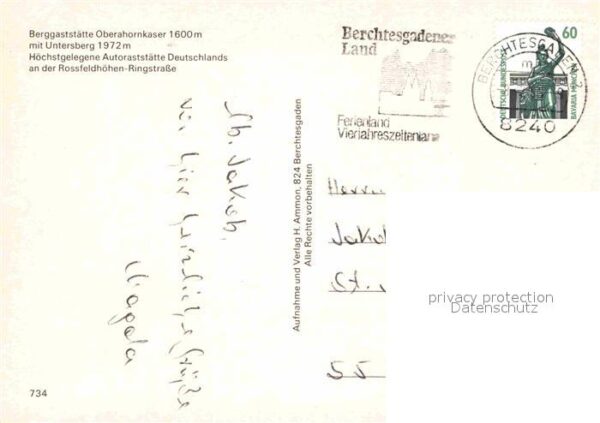 Berggaststätte Oberahornkaser 1600 m
mit Untersberg 1972 m
Höchstgelegene Autoraststätte Deutschlands
an der Rossfeldhöhen-Ringstraße
Berchtesgadener
Land
Ferienland
Vierjahreszeitenland
BERCHTESGADEN 2
8240
60
DEUTSCHE BUNDESPOST
BAVARIA MÜNCHEN
Lb. Jakob,
von hier herzliche Grüße
Magda
Aufnahme und Verlag H. Ammon, 824 Berchtesgaden
Alle Rechte vorbehalten
Herrn
Jakob
St.
55
privacy protection
Datenschutz
734